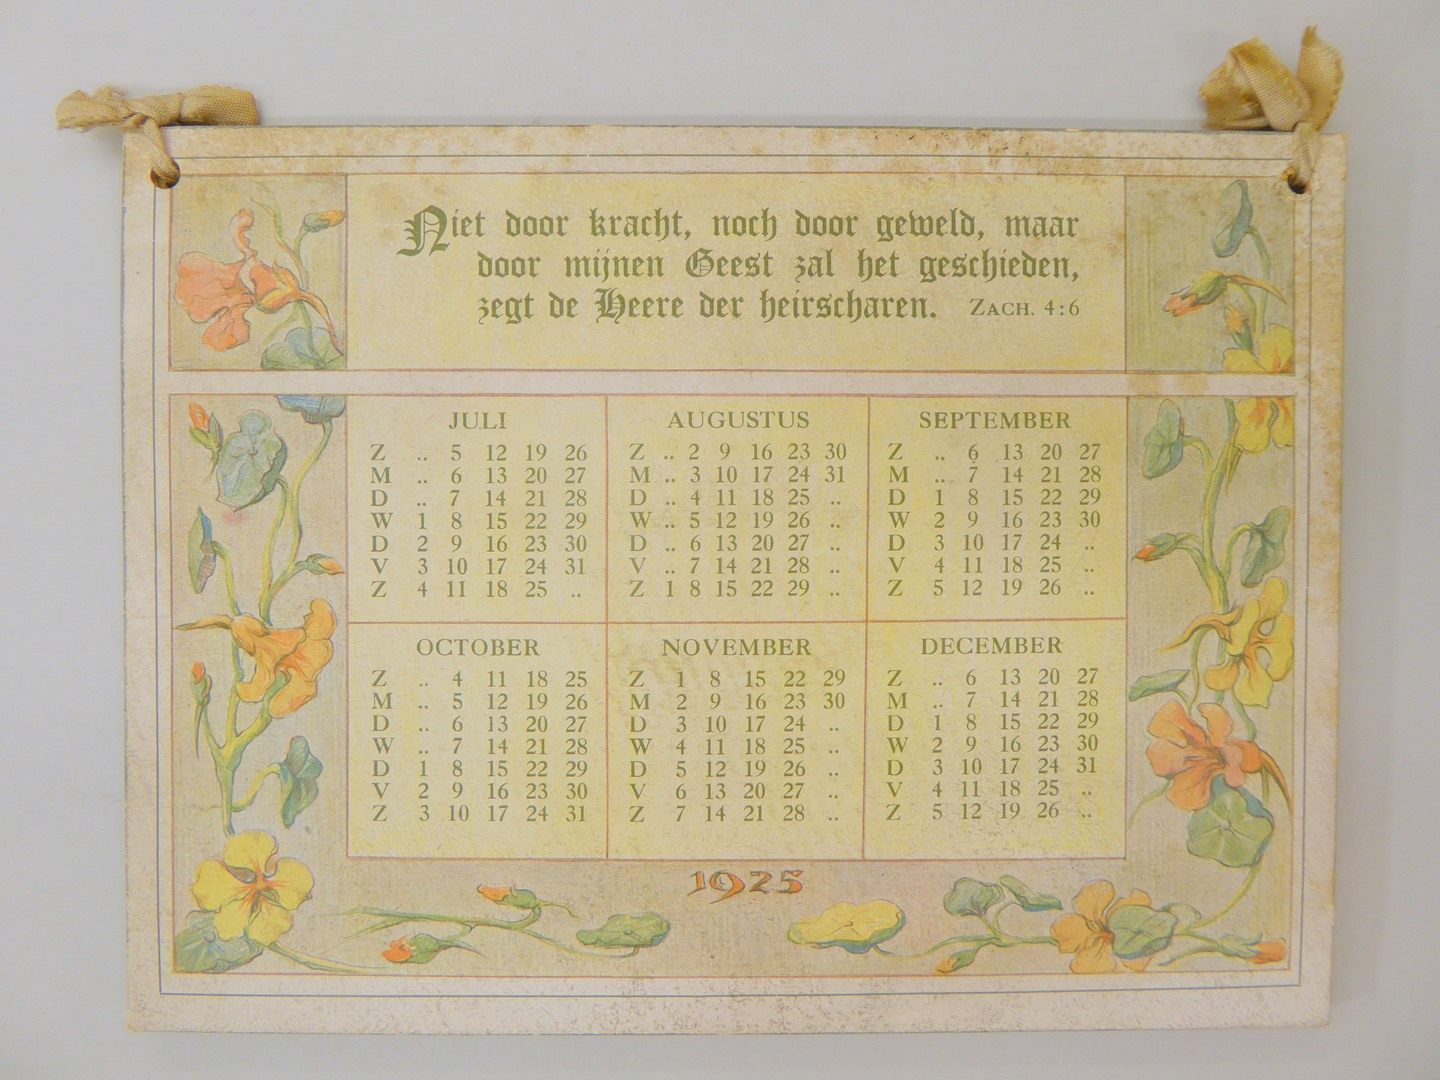 Niet door kracht, noch door geweld, maar
door mijnen Geest zal het geschieden,
zegt de Heere der heirscharen. ZACH. 4:6
JULI
Z .. 5 12 19 26
M .. 6 13 20 27
D .. 7 14 21 28
W 1 8 15 22 29
D 2 9 16 23 30
V 3 10 17 24 31
Z 4 11 18 25 ..
AUGUSTUS
Z .. 2 9 16 23 30
M .. 3 10 17 24 31
D .. 4 11 18 25 ..
W .. 5 12 19 26 ..
D .. 6 13 20 27 ..
V .. 7 14 21 28 ..
Z 1 8 15 22 29 ..
SEPTEMBER
Z .. 6 13 20 27
M .. 7 14 21 28
D 1 8 15 22 29
W 2 9 16 23 30
D 3 10 17 24 ..
V 4 11 18 25 ..
Z 5 12 19 26 ..
OCTOBER
Z .. 4 11 18 25
M .. 5 12 19 26
D .. 6 13 20 27
W .. 7 14 21 28
D 1 8 15 22 29
V 2 9 16 23 30
Z 3 10 17 24 31
NOVEMBER
Z 1 8 15 22 29
M 2 9 16 23 30
D 3 10 17 24 ..
W 4 11 18 25 ..
D 5 12 19 26 ..
V 6 13 20 27 ..
Z 7 14 21 28 ..
DECEMBER
Z .. 6 13 20 27
M .. 7 14 21 28
D 1 8 15 22 29
W 2 9 16 23 30
D 3 10 17 24 31
V 4 11 18 25 ..
Z 5 12 19 26 ..
1925